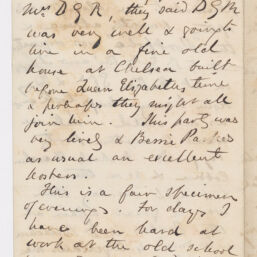 Mrs D G R, they said D G R
was very well & going to
live in a fine old
house at Chelsea built
before Queen Elizabeths time
& perhaps they might all
join him. This party was
very lively & Bessie Parkes
as usual an excellent
hostess.
This is a fair specimen
of evenings. For days I
have been hard at
work at the old school